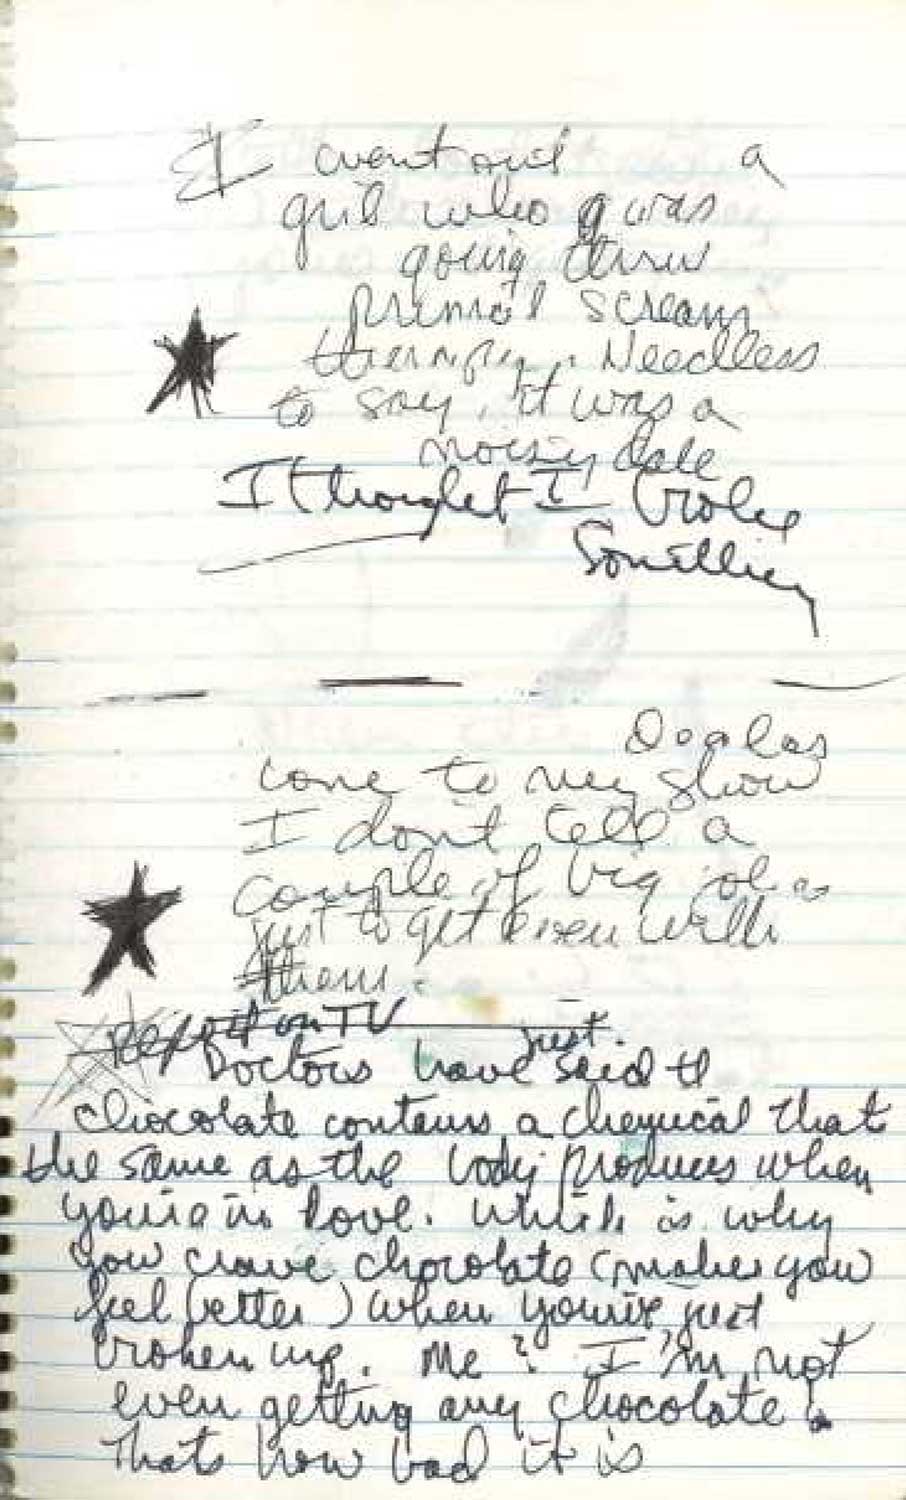 I went out a
girl who was
going threw
primal scream
therapy. Needless
to say, it was a
noisy date
I thought I broke
Something
come to my show
I don't tell a
couple of big jokes
just to get even with
them.
Report on TV
just
Doctors have said th
chocolate contains a chemical that
the same as the body produces when
you're in love. Which is why
you crave chocolate (makes you
feel better) when you've just
broken up. Me? I'm not
even getting any chocolate!
Thats how bad it is